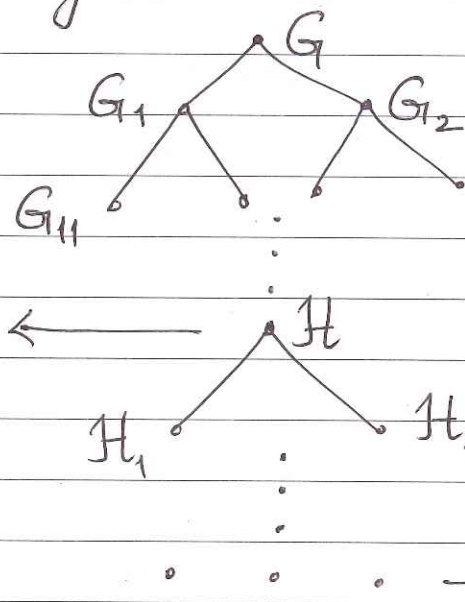 G
G₁ G₂
G₁₁
H
H₁ H